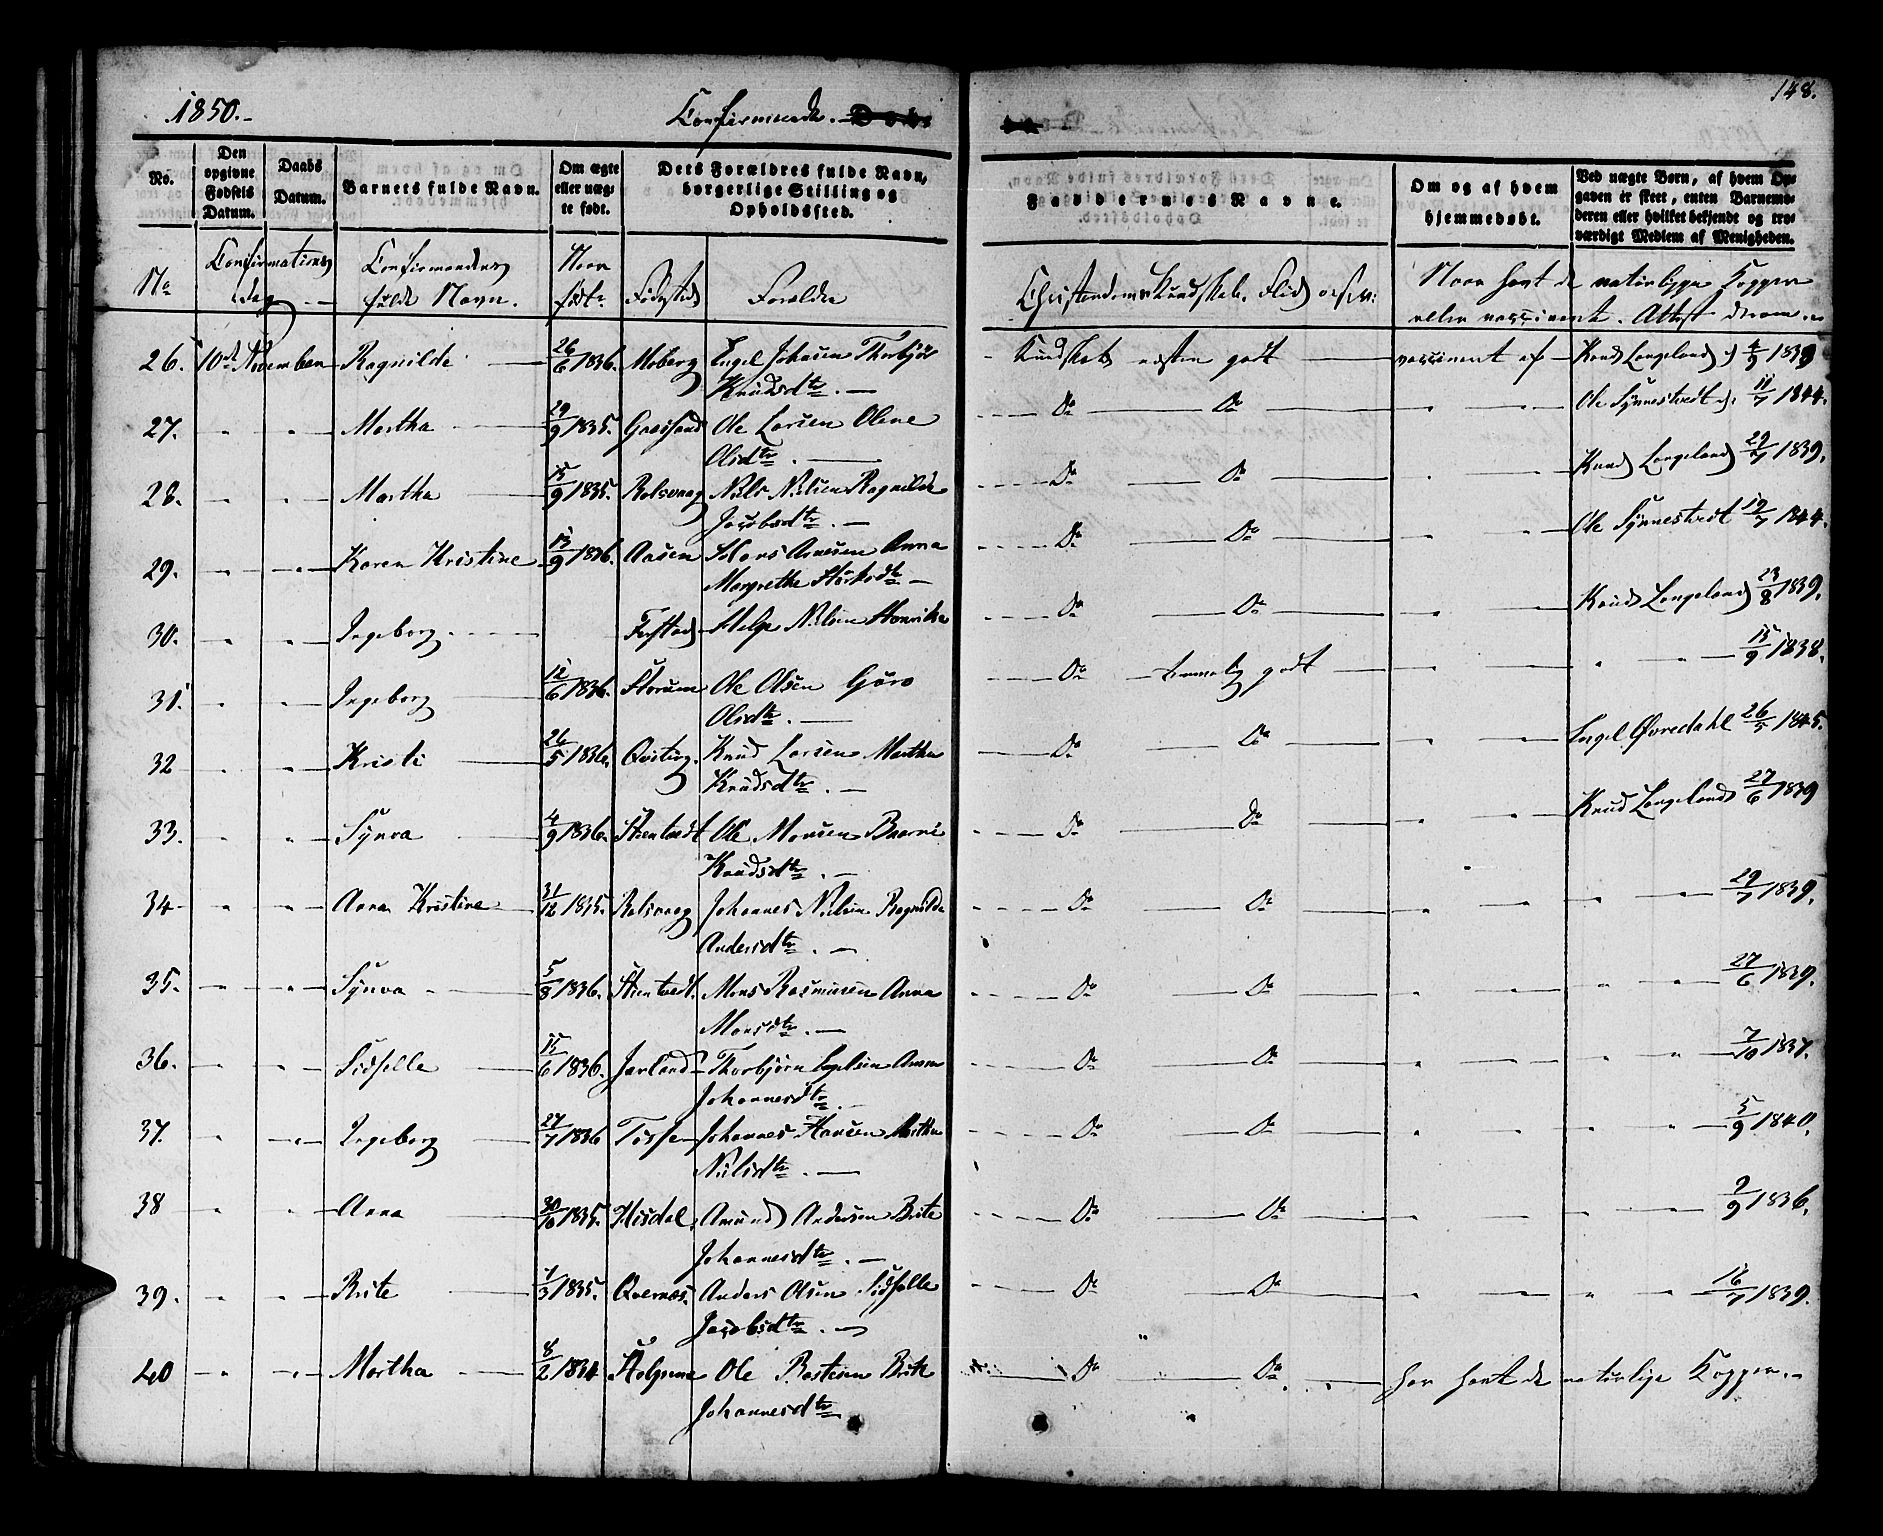 1850.
Confirmerede. Døbte
148.
No.
Den opgivne Fødsels Datum.
Daabs Datum.
Barnets fulde Navn.
Om ægte eller uægte født.
Dets Forældres fulde Navn, borgerlige Stilling og Opholdssted.
Faddernes Navne.
Om og af hvem hjemmedøbt.
Ved uægte Børn, af hvem Opgaven er skeet, enten Barnemoderen eller hvilket bekjendt og troværdigt Medlem af Menigheden.
No Confirmations Dag Confirmandens fulde Navn. Naar født. Fødested Forældre Christendoms Kundskab, Flid Naar havt de naturlige Kopper eller vaccineret. Attest derom.
26. 10de November Ragnilde 26/6 1836. Moberg Engel Johnsen Thorbjør Knudsdtr. Kundskab næsten godt vaccineret af Knud Langeland 4/9 1838
27. Martha 29/9 1835. Gaassand Ole Larsen Olene Olsdtr. Do Do Ole Synnestvedt 11/7 1844.
28. Martha 15/9 1835. Rolsvaag Niels Nielsen Ragnilde Jacobsdtr. Do Do Knud Langeland 29/7 1839.
29. Karen Kristine 13/9 1836. Aasen Hans Arnesen Anna Margrethe Do Do Ole Synnestvedt 19/7 1844.
30. Ingeborg Helge Nielsen Henrikke Do Do Knud Langeland 23/8 1839.
31. Ingeborg 12/6 1836. Storum Ole Olsen Gjøro Olsdtr. Do temmelig godt 15/9 1838.
32 Kristi 26/5 1836. Qviting. Knud Larsen Martha Knudsdtr. Do Do Engel Øvredahl 26/5 1845.
33. Synva 4/9 1836. Steintvedt Ole Monsen Knudsdtr. Do Do Knud Langeland 27/6 1839
34 Anna Kristine 31/12 1835. Rolsvaag Johannes Nielsen Ragnilde Andersdtr. Do Do 29/7 1839.
35. Synva 5/8 1836. Steintvedt. Mons Rasmusen Anna Monsdtr. Do Do 27/6 1839.
36. Sidselle 15/6 1836. Jarland Thorbjørn Engelsen Anna Johannesdtr. Do Do 7/10 1837.
37. Ingeborg 27/7 1836 Tøsse Johannes Hansen Martha Nielsdtr. Do Do 5/9 1840.
38 Anna 30/10 1835. Hisdal. Amund Andersen Brite Johannesdtr. Do Do 2/9 1836.
39. Brite 1/3 1835. Qvernæs. Anders Olsen Sidselle Jacobsdtr. Do Do 16/7 1839.
40 Martha 8/2 1834 Ole Brite Johannesdtr Do Do har havt de naturlige Kopper.